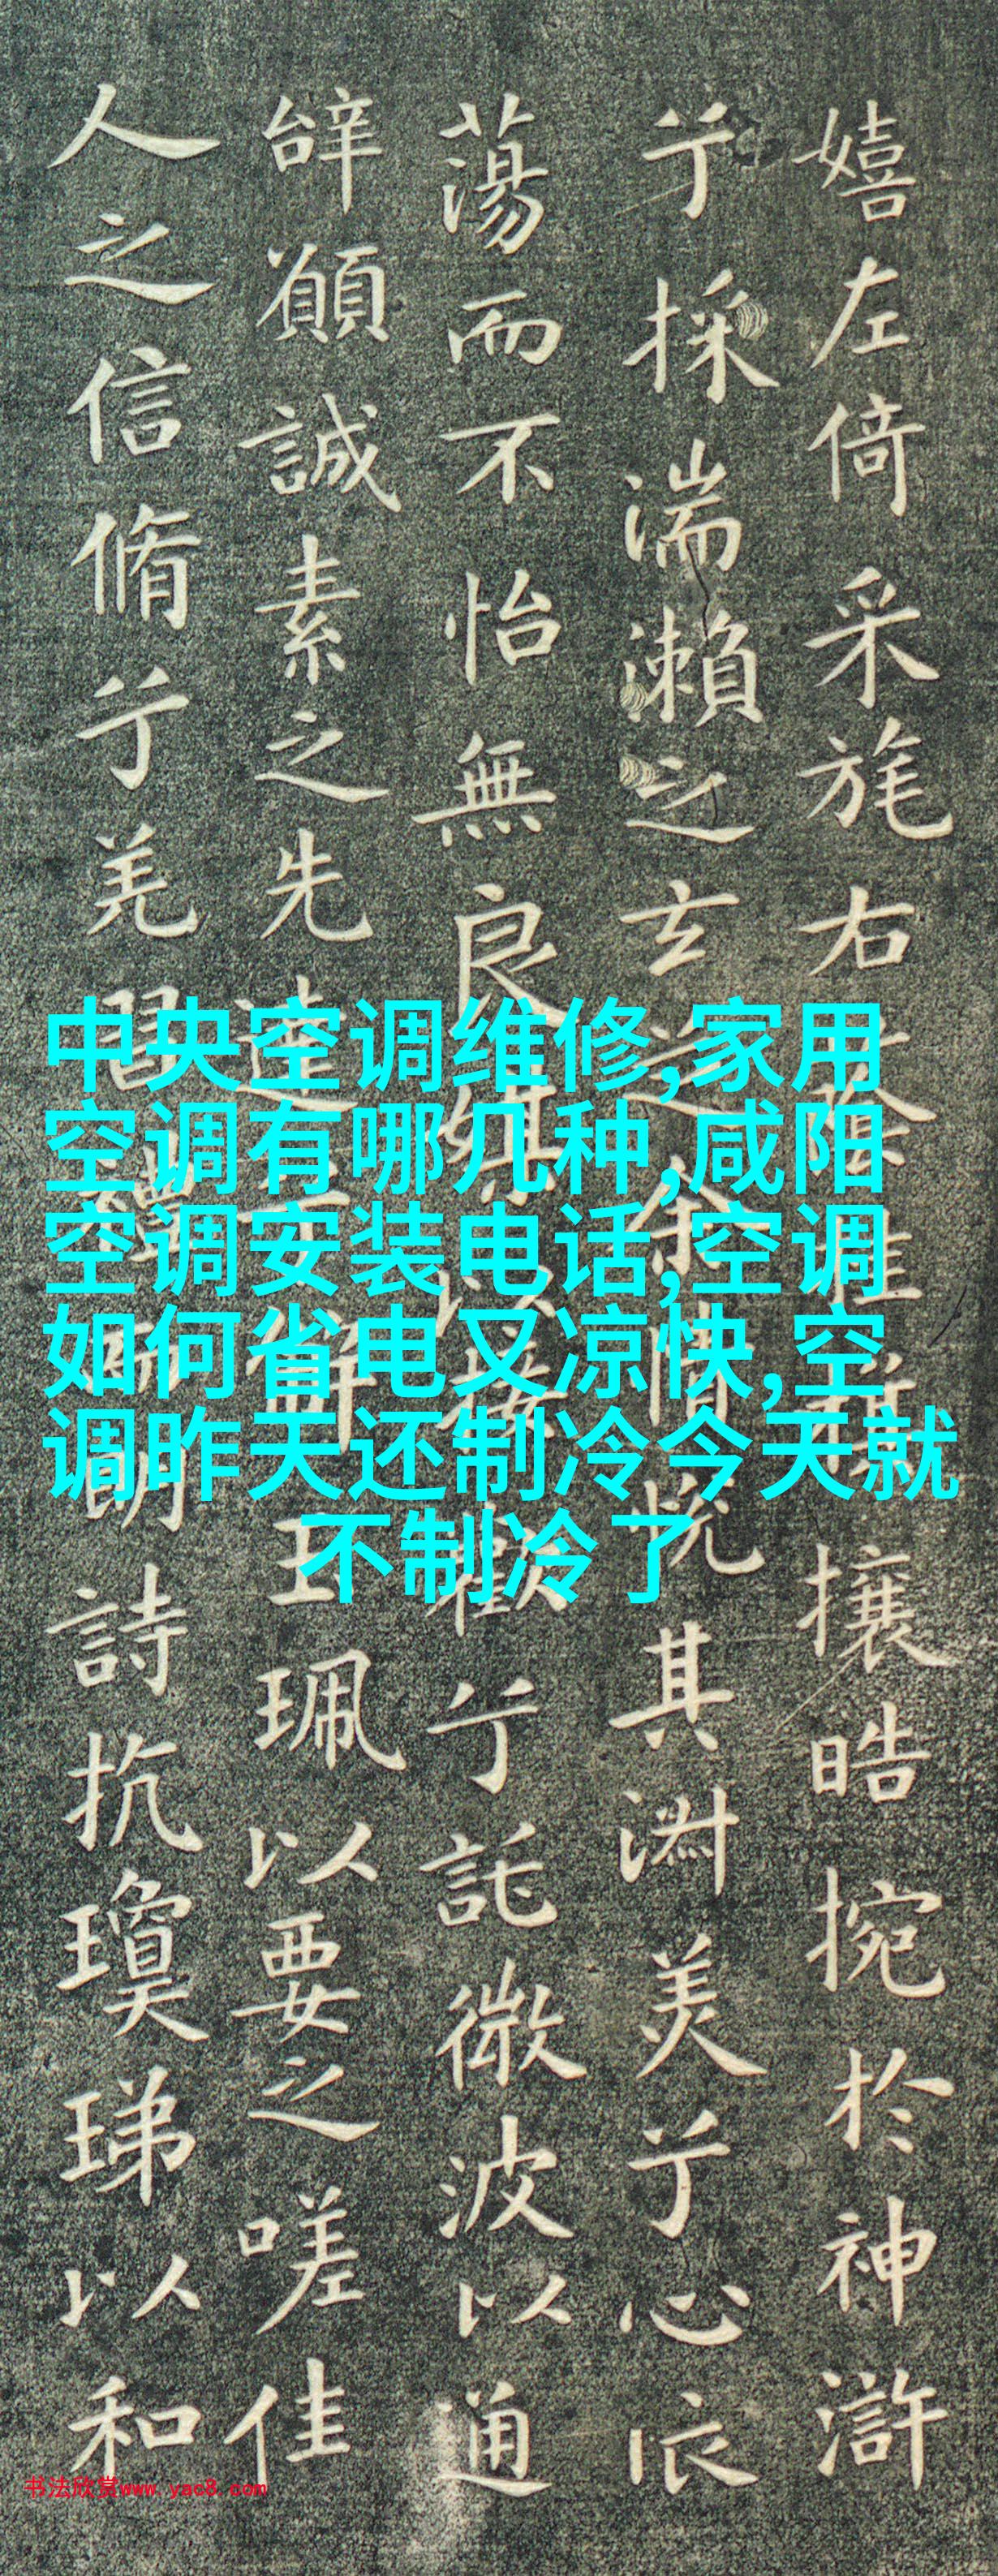 嬉左倚采旄右蔭桂旗攘皓捥於神滸
兮採湍瀨之玄芝余情悅其淑美兮心振
蕩而不怡無良媒以接歡兮託微波以通
辭願誠素之先達兮解玉珮以要之嗟佳
人之信脩兮羌習禮而明詩抗瓊珶以和
中央空调维修,家用
空调有哪几种,咸阳
空调安装电话,空调
如何省电又凉快,空
调昨天还制冷今天就
不制冷了
书法欣赏www.yac8.com